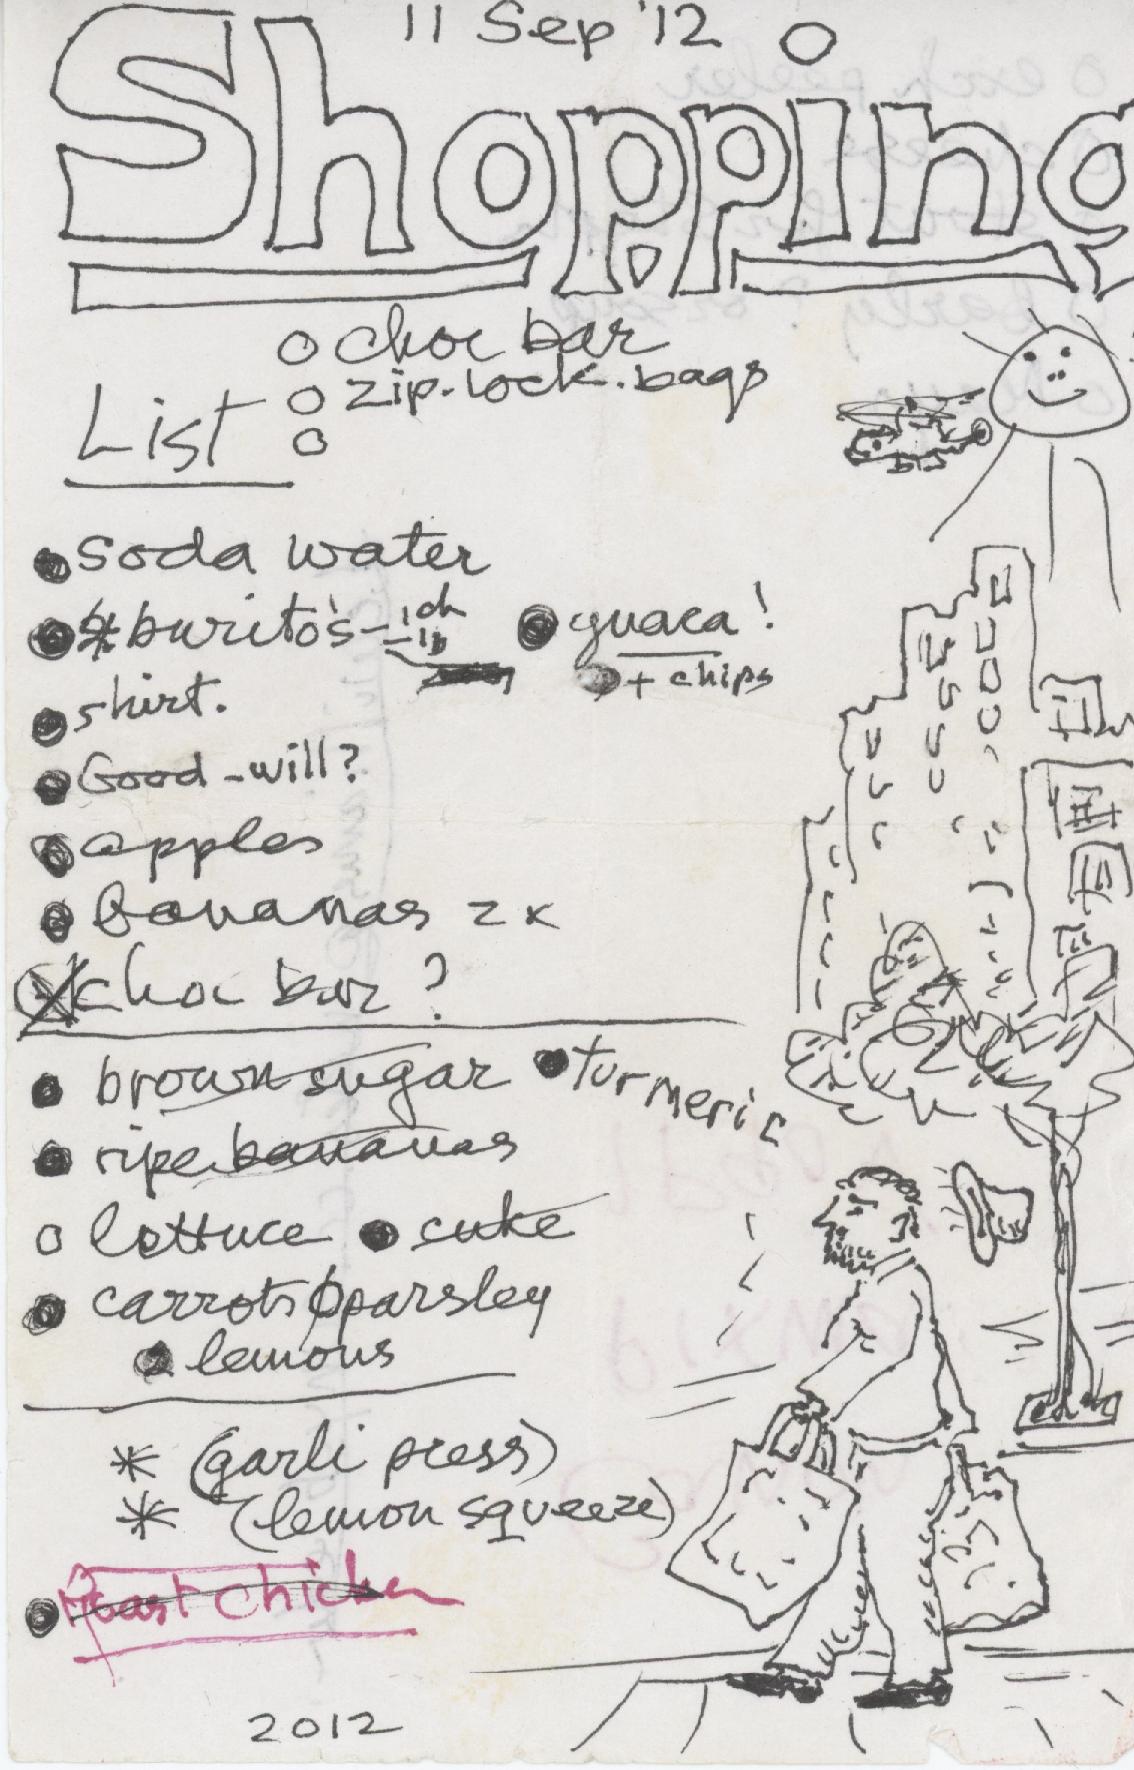 11 Sep '12
Shopping
choc bar
zip-lock.bags
List
soda water
*burito's - 1 ch
guaca!
+ chips
shirt.
Good-will?
apples
bananas 2x
choc bar ?
brown sugar
turmeric
ripe bananas
lettuce
cuke
carrots parsley
lemons
* (garli press)
* (lemon squeeze)
Roast chicken
2012